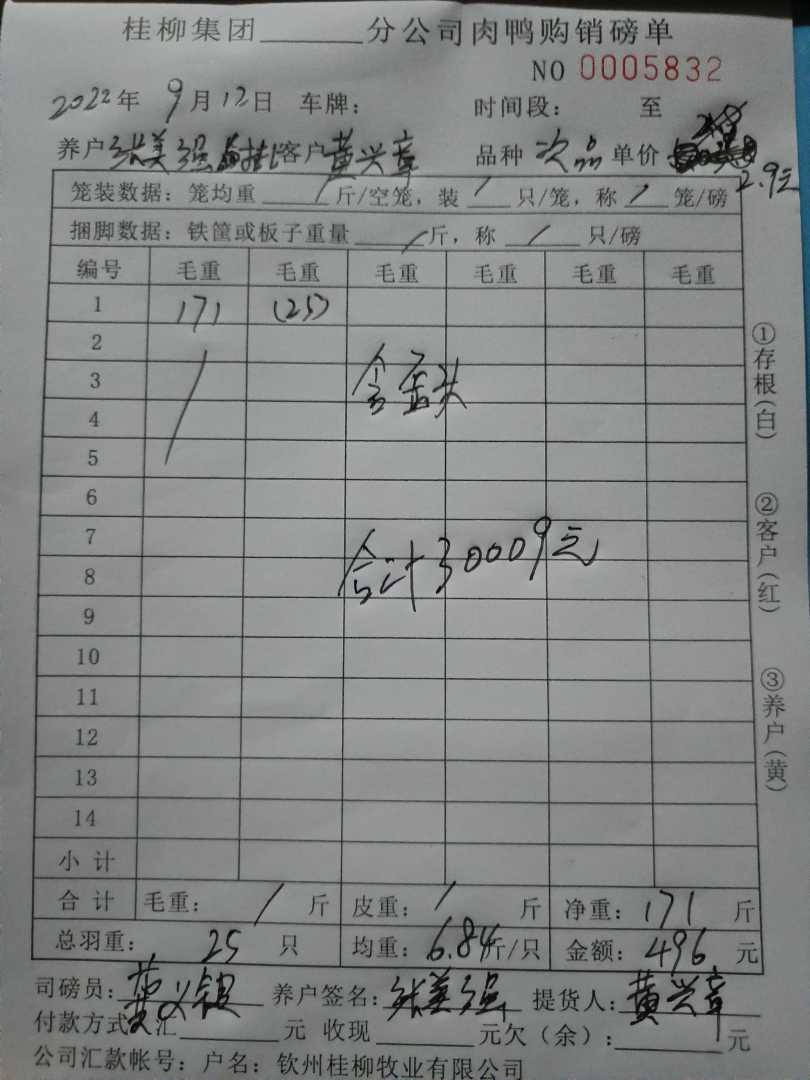 桂柳集团______分公司肉鸭购销磅单
NO 0005832
2022年 9月12日 车牌: 时间段: 至
养户 张美强 客户 黄兴章 品种 次品 单价
2.9元
笼装数据: 笼均重 / 斤/空笼, 装 / 只/笼, 称 / 笼/磅
捆脚数据: 铁筐或板子重量 / 斤, 称 / 只/磅
编号 毛重 毛重 毛重 毛重 毛重 毛重
1 171 (25)
2
3 含歪头
4
5
6
7 合计30009元
8
9
10
11
12
13
14
小计
合计 毛重: / 斤 皮重: / 斤 净重: 171 斤
总羽重: 25 只 均重: 6.84斤/只 金额: 496 元
司磅员: 养户签名: 张美强 提货人: 黄兴章
付款方式: 汇______元 收现______元欠(余):______元
公司汇款帐号: 户名: 钦州桂柳牧业有限公司
①存根(白)
②客户(红)
③养户(黄)